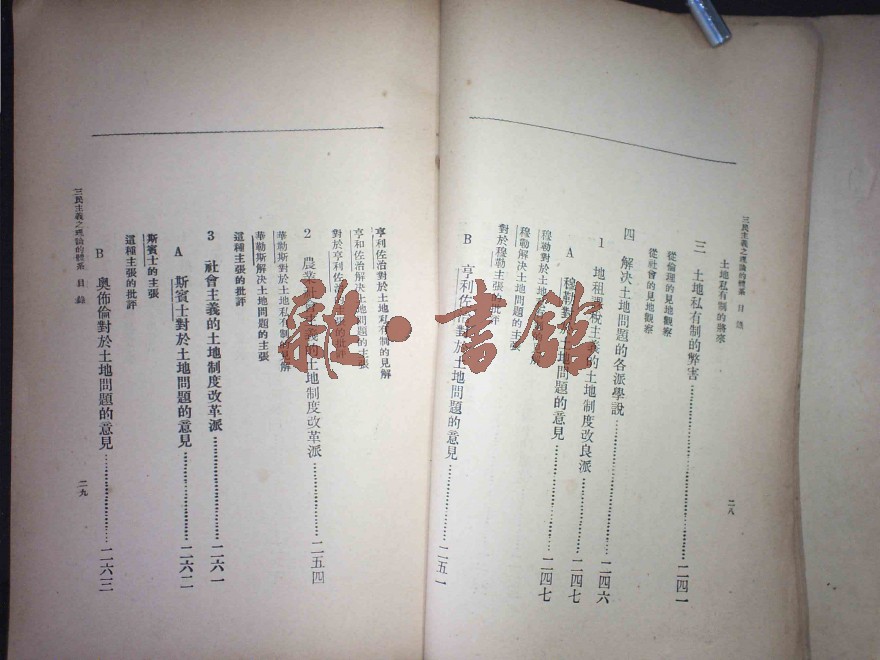 三民主義之理論的體系 目錄
二八
土地私有制的將來
三 土地私有制的弊害……二四一
從倫理的見地觀察
從社會的見地觀察
四 解决土地問題的各派學說……二四六
1 地租課稅主義的土地制度改良派……二四七
A 穆勒對於土地問題的意見……二四七
穆勒對於土地私有制的見解
穆勒解决土地問題的主張
對於穆勒主張的批評
B 亨利佐治對於土地問題的意見……二五一
亨利佐治對於土地私有制的見解
亨和佐治解决土地問題的主張
對於亨利佐治主張的批評
2 農業社會主義的土地制度改革派……二五四
華勒斯對於土地私有制的見解
華勒斯解决土地問題的主張
這種主張的批評
3 社會主義的土地制度改革派……二六一
A 斯賓士對於土地問題的意見……二六二
斯賓士的主張
這種主張的批評
B 奧佈倫對於土地問題的意見……二六三
三民主義之理論的體系 目錄
二九
雜·書館